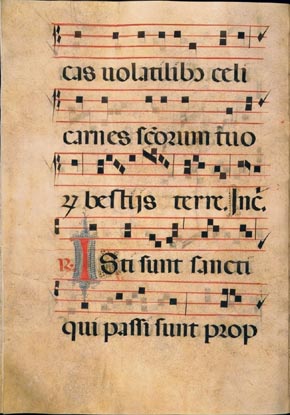 cas uolatilibꝫ celi
carnes scōrum tuo
ꝝ bestijs terre. Inc̄.
℟. Isti sunt sancti
qui passi sunt prop